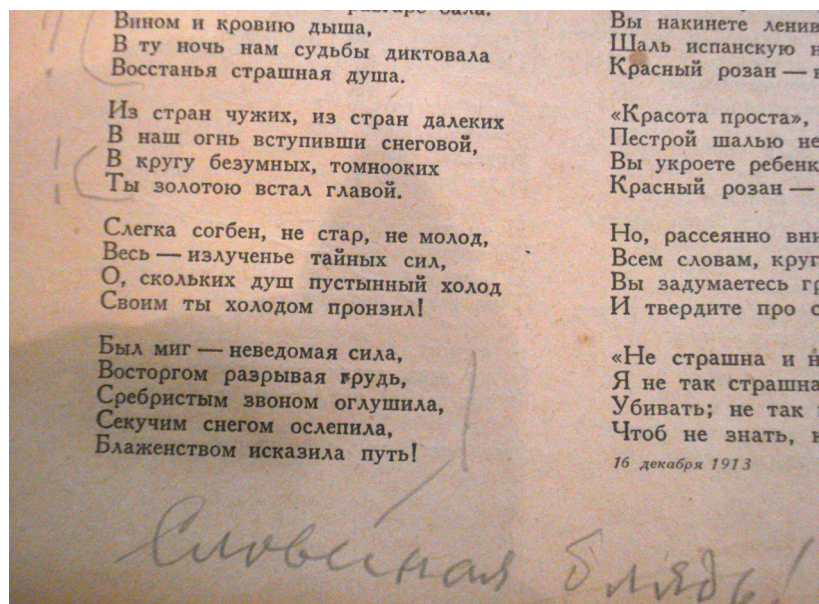 бала.
Вином и кровию дыша,
В ту ночь нам судьбы диктовала
Восстанья страшная душа.
Из стран чужих, из стран далеких
В наш огнь вступивши снеговой,
В кругу безумных, томнооких
Ты золотою встал главой.
Слегка согбен, не стар, не молод,
Весь — излученье тайных сил,
О, скольких душ пустынный холод
Своим ты холодом пронзил!
Был миг — неведомая сила,
Восторгом разрывая грудь,
Сребристым звоном оглушила,
Секучим снегом ослепила,
Блаженством исказила путь!
Вы накинете
Шаль испанскую
Красный розан —
«Красота проста»,
Пестрой шалью
Вы укроете
Красный розан —
Но, рассеянно
Всем словам,
Вы задумаетесь
И твердите про
«Не страшна и
Я не так страшна
Убивать; не так
Чтоб не знать,
16 декабря 1913
Словесная блядь!